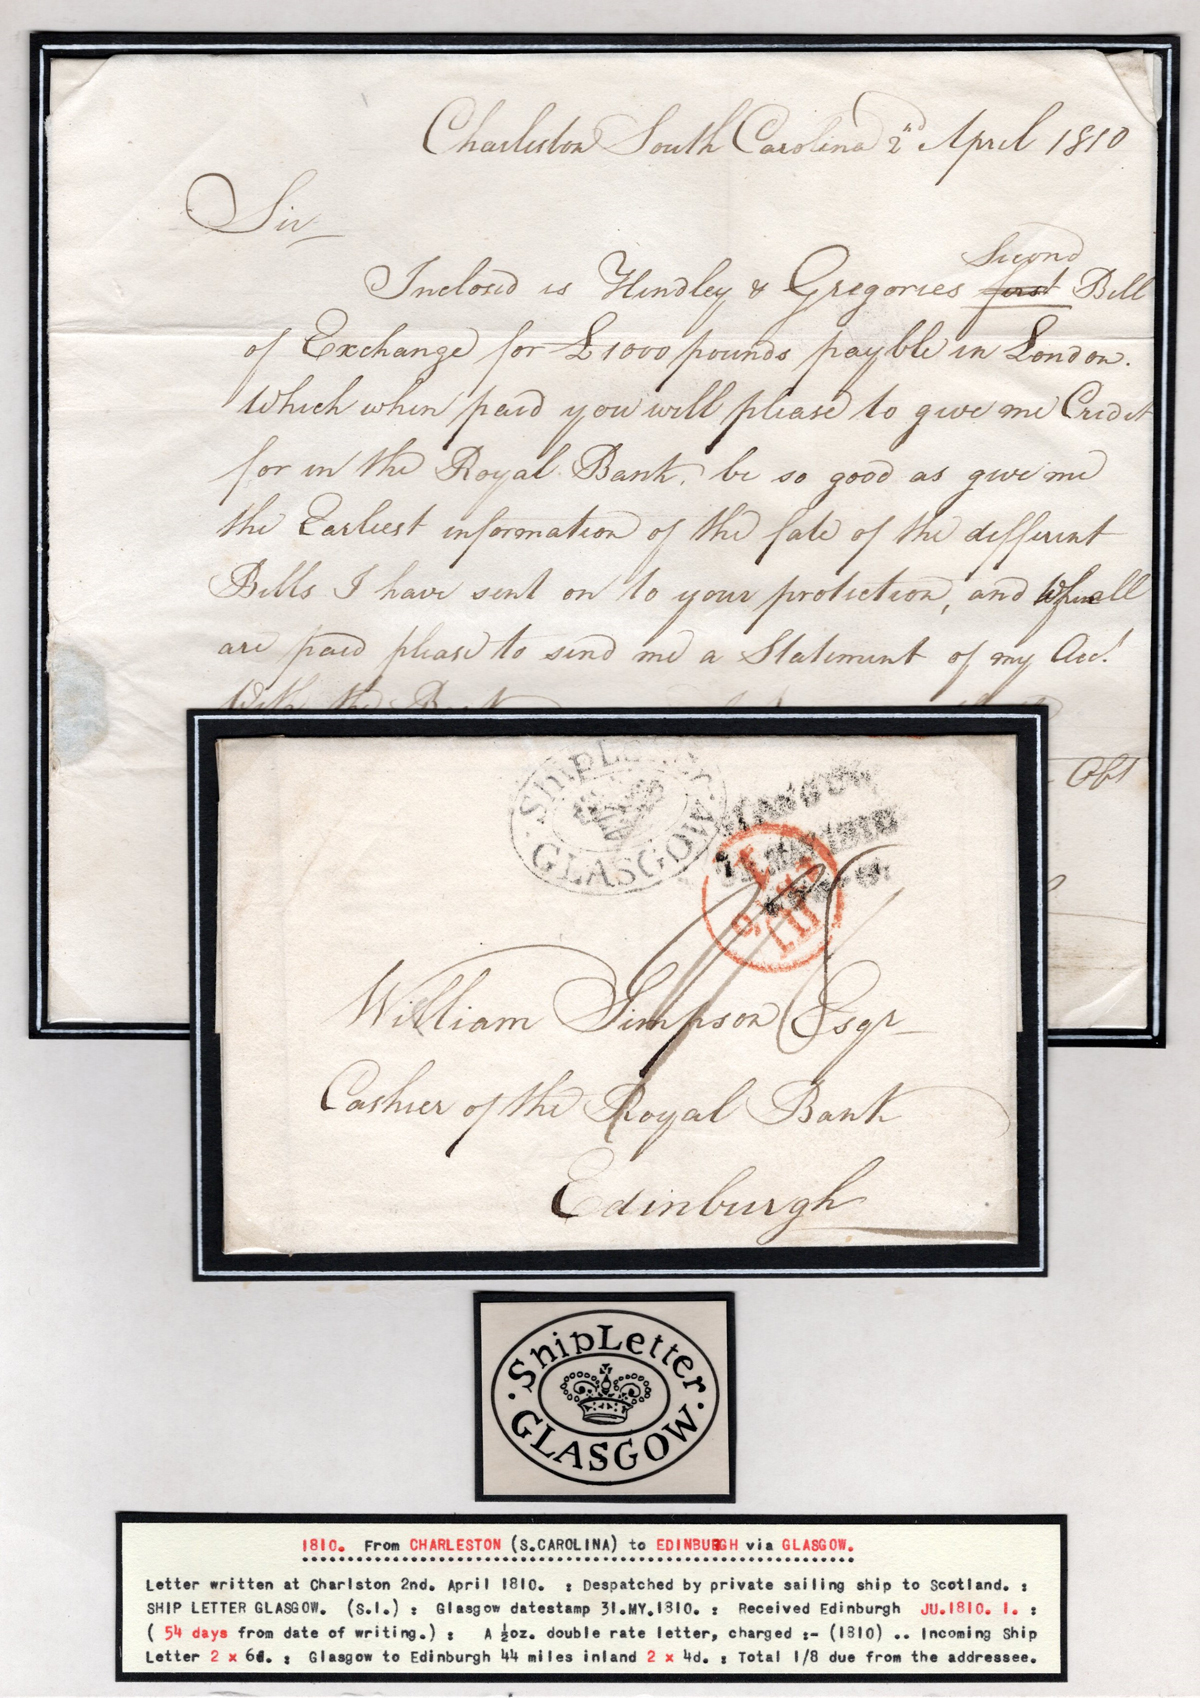 Charleston South Carolina 2nd April 1810
Sir
Second
Inclosed is Hindley & Gregories first Bill
of Exchange for £1000 pounds payble in London.
Which when paid you will please to give me Credit
for in the Royal Bank, be so good as give me
the Earliest information of the fate of the different
Bills I have sent on to your protection, and When all
are paid please to send me a Statement of my Acct.
With the Bank
Obt
Ship Letter
GLASGOW
GLASGOW
1810
1/8
William Simpson Esqr
Cashier of the Royal Bank
Edinburgh
Ship Letter
GLASGOW.
1810. From CHARLESTON (S.CAROLINA) to EDINBURGH via GLASGOW.
Letter written at Charlston 2nd. April 1810. : Despatched by private sailing ship to Scotland. :
SHIP LETTER GLASGOW. (S.1.) : Glasgow datestamp 31.MY.1810. : Received Edinburgh JU.1810. 1. :
( 54 days from date of writing.) : A ½oz. double rate letter, charged :- (1810) .. Incoming Ship
Letter 2 x 6d. : Glasgow to Edinburgh 44 miles inland 2 x 4d. : Total 1/8 due from the addressee.